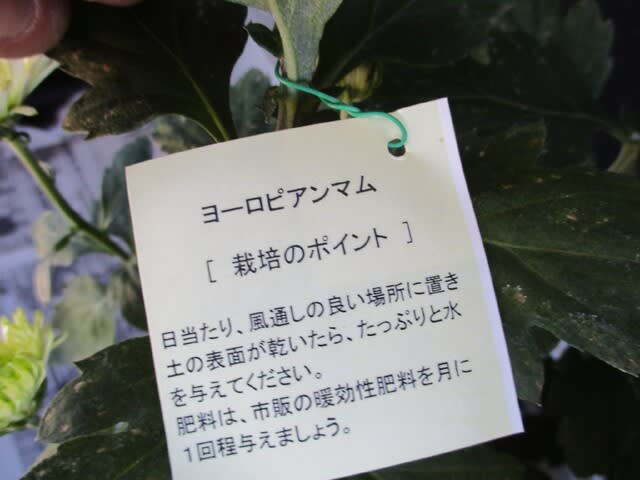 ヨーロピアンマム
[ 栽培のポイント ]
日当たり、風通しの良い場所に置き
土の表面が乾いたら、たっぷりと水
を与えてください。
肥料は、市販の暖効性肥料を月に
1回程与えましょう。